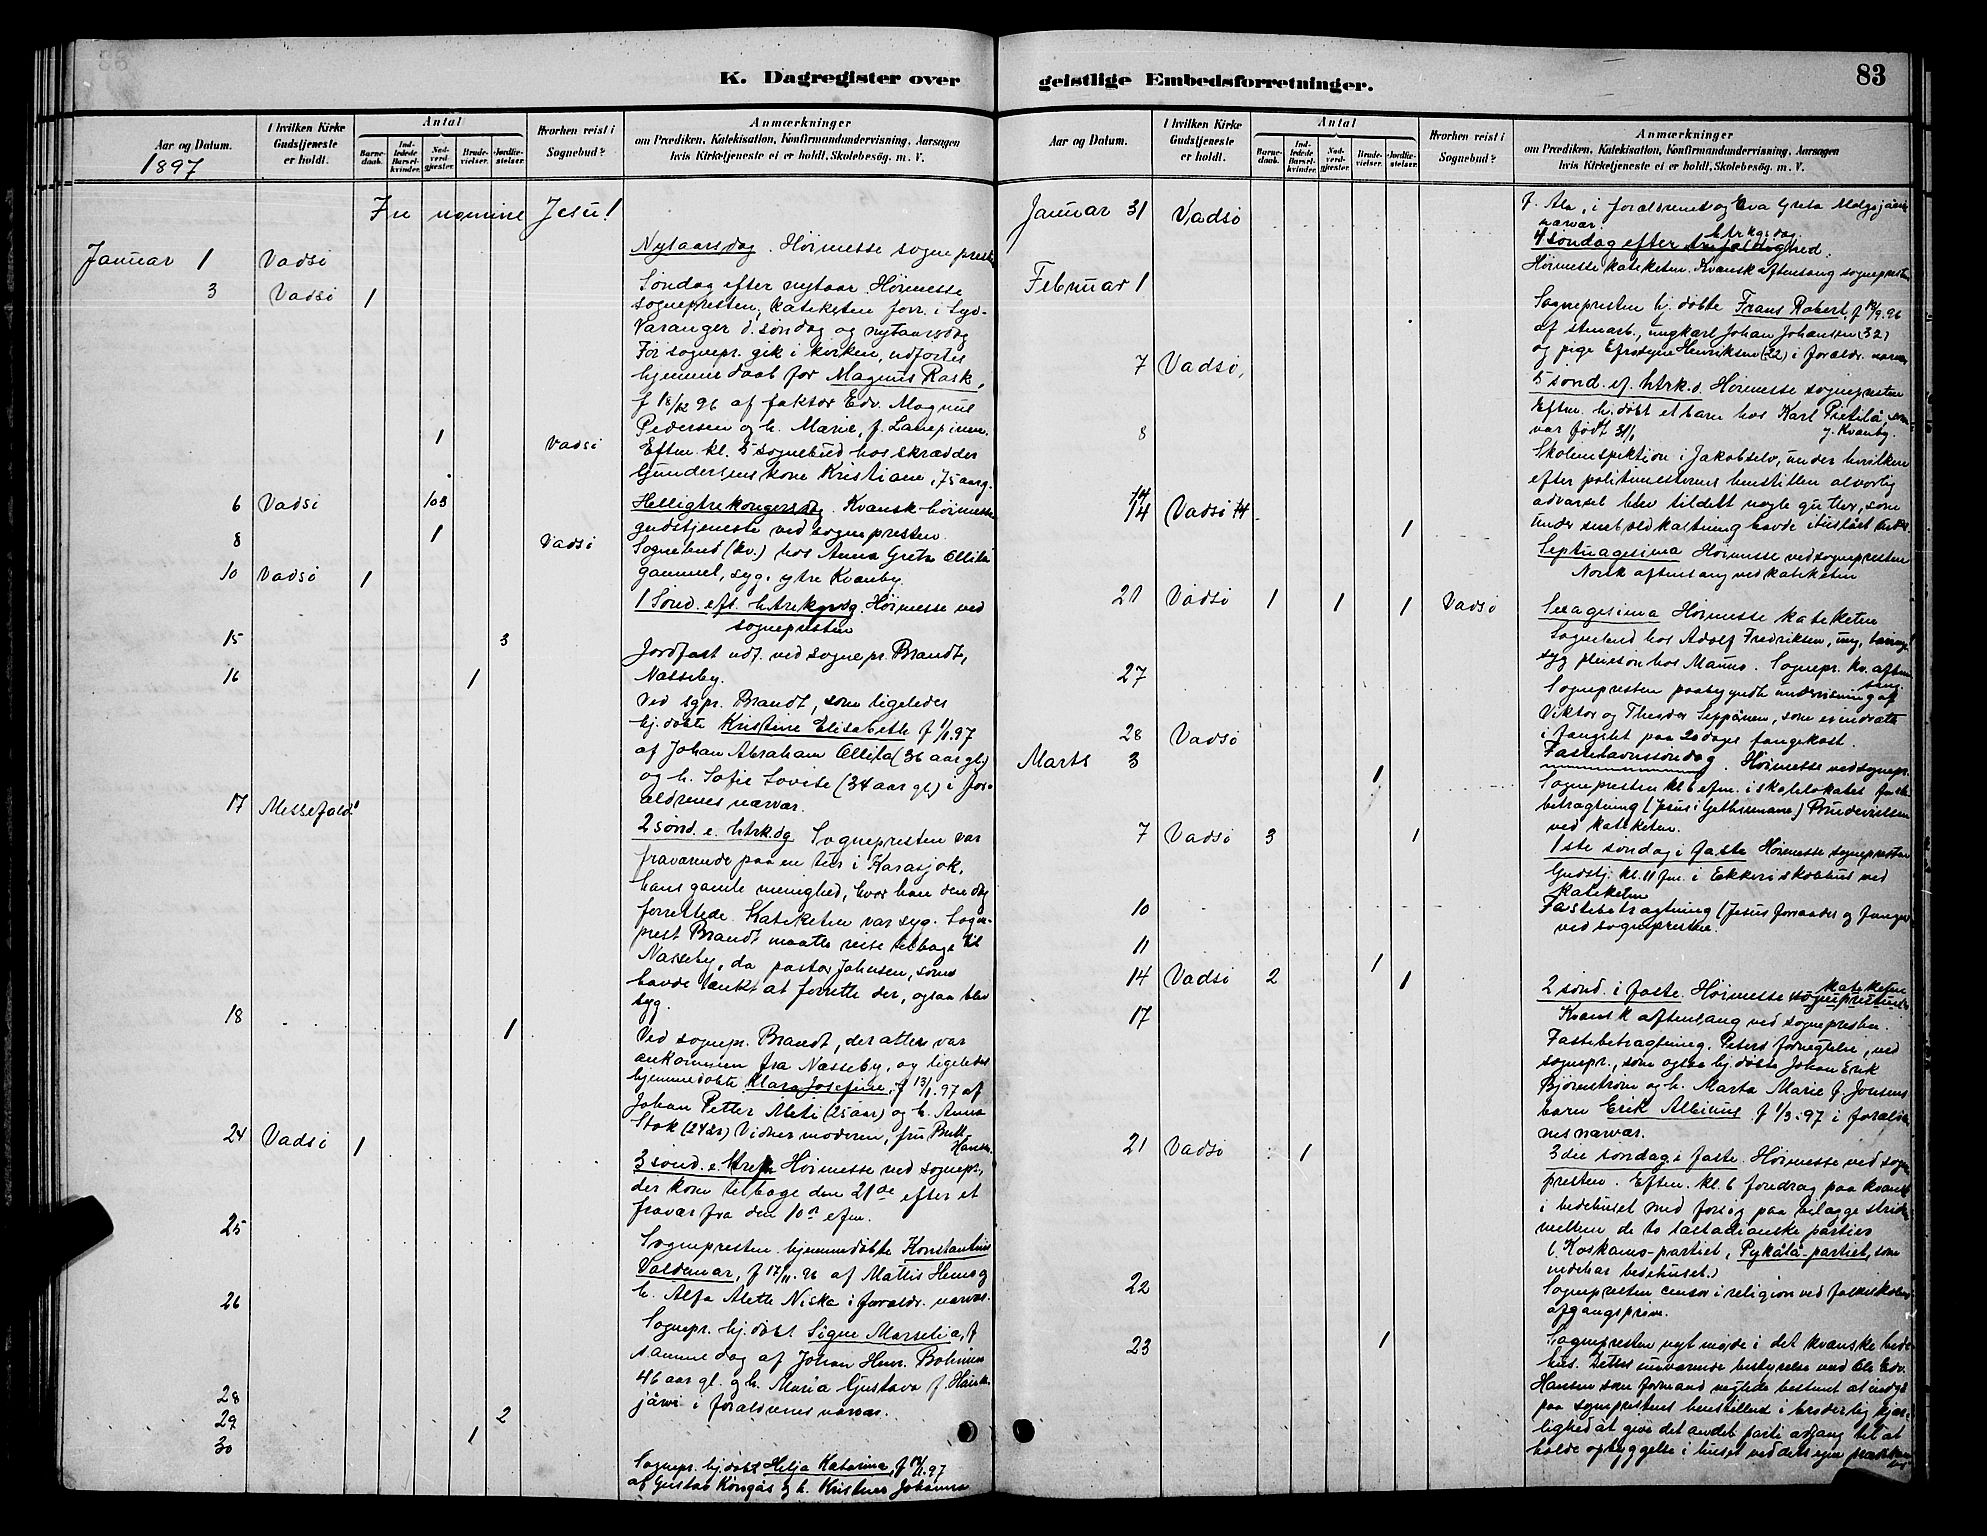 K. Dagregister over
Aar og Datum.
I hvilken Kirke Gudstjeneste er holdt.
Antal
Barnedaab.
Indledede Barselkvinder.
Nadverdgjæster.
Brudevielser.
Jordfæstelser.
Hvorhen reist i Sognebud?
Anmærkninger
om Prædiken, Katekisation, Konfirmandundervisning, Aarsagen
hvis Kirketjeneste ei er holdt, Skolebesög. m. V.
1897
In nomine Jesu!
Januar 1 Vadsø
Nytaarsdag. Høimesse sognepresten
3 Vadsø 1
Søndag efter nytaar Høimesse
sognepresten, kateketen forr. i Syd-
Varanger d. søndag og nytaarsdag
Før sognepr. gik i kirken, udførtes
hjemmedaab for Magnus Rask,
f 18/12 96 af faktor Edv. Magnus
Pedersen og h. Marie, f.
1 Vadsø
Eftm. kl. 5 sognebud hos skrædder
Gundersens kone Kristiane, 75 aarg.
6 Vadsø 103
Helligtrekongersdag. Kvansk høimesse
gudstjeneste ved sognepresten.
8 1 Vadsø
Sognebud (kv.) hos Anna Greta Ollila
gammel, syg. ytre Kvænby.
10 Vadsø 1
1 Sønd. eft. htrekgrsdg. Høimesse ved
sognepresten
15 3
Jordfæst udf. ved sognepr. Brandt,
Næsseby.
16 1
Ved sgpr. Brandt, som ligeledes
hj. døbte Kristine Elisabeth f 1/1.97
af Johan Abraham Ollila (36 aar gl.)
og h. Sofie Lovise (34 aar gl.) i for-
ældrenes nærvær.
17 Messefald!
2 sønd. e. htrk.dg Sognepresten var
fraværende paa en tur i Karasjok,
hans gamle menighed, hvor han den dag
forrettede. Kateketen var syg. Sogne-
prest Brandt maatte reise tilbage til
Næsseby, da pastor Johnsen, som
havde tænkt at forrette der, ogsaa blev
syg.
18 1
Ved sognepr. Brandt, der atter var
ankommen fra Næsseby, og ligeledes
hjemmedøbte Klara Josefine, f 13/1.97 af
Johan Petter Aleti (25 aar) og h. Anna
Stok (24 ar) Vidner moderen, fru Britt
Hansen.
24 Vadsø 1
3 sønd. e. htrek Høimesse ved sognepr.,
der kom tilbage den 21de efter et
fravær fra den 10de efm.
25
Sognepresten hjemmedøbte Konstantius
Valdemar, f 17/11.96 af Mattis Hemo og
h. Alfa Alette Niska i forældr. nærvær.
26
Sognepr. hj. døbt Signe Marselia, f
samme dag af Johan Henr.
46 aar gl. og h. Maria Gustava f.
järvi i forældrenes nærvær.
28
29 2
30 1
Sognepr. hj. døbt Helja Katarina, f 12/1.97
af Gustav Köngäs og h. Kristine Johanna
geistlige Embedsforretninger.
83
Aar og Datum.
I hvilken Kirke Gudstjeneste er holdt.
Antal
Barnedaab.
Indledede Barselkvinder.
Nadverdgjæster.
Brudevielser.
Jordfæstelser.
Hvorhen reist i Sognebud?
Anmærkninger
om Prædiken, Katekisation, Konfirmandundervisning, Aarsagen
hvis Kirketjeneste ei er holdt, Skolebesög. m. V.
f. Ala, i forældrenes og Eva Greta
nærvær.
Januar 31 Vadsø
htrkgsdag
4 søndag efter trifoldighed.
Høimesse kateketen. Kvansk aftensang sognepresten
Februar 1
Sognepresten hj. døbte Frans Robert, f 12/9.96
af stenarb., ungkarl Johan Johansen (32)
og pige Efrosyne Henriksen (22) i forældr. nærvær
7 Vadsø,
5 sønd. ef. htrk.d. Høimesse sognepresten
Eftm. hj. døbt et barn hos Karl Pietilä, som
var født 31/1 y. Kvænby.
8
Skoleinspektion i Jakobselv, under hvilken
efter politimesterens henstillen alvorlig
advarsel blev tildelt nogle gutter, som
under sneboldkastning havde ituslaaet
14 Vadsø 1
Septuagesima Høimesse ved sognepresten
Norsk aftensang ved kateketen
21 Vadsø 1 1 1 Vadsø
Sexagesima Høimesse kateketen
Sognebud hos Adolf Fredriksen, ung,
syg person hos Manno. Sognepr. kv. aften
sang.
27
Sognepresten paabegyndte undervisning af
Viktor og Theodor Seppänen, som er indsatte
i fængslet paa 20 dages fangekost.
28 Vadsø
Fastelavnssøndag. Høimesse ved sognepr.
Marts 3 1
Sognepresten kl 6 efm. i skolelokalet faste-
betragtning (Jesus i Gethsemane) Brudevielsen
ved kateketen.
7 Vadsø 3 1
1ste søndag i faste Høimesse sognepresten
Gudstj. kl. 11 fm. i Ekkerø skolehus ved
kateketen
10
Fastebetragtning (Jesus forraades og fanges)
ved sognepresten.
11 1
14 Vadsø 2 1
kateketen
2 sønd. i faste. Høimesse sognepresten
Kvænsk aftensang ved sognepresten.
17
Fastebetragtning, Peters fornegtelse, ved
sognepr., som ogsaa hj. døbte Johan Erik
Bjørnstrøm og h. Marta Marie f. Jonsens
barn Erik Albinus f 1/3.97 i forældre-
nes nærvær.
21 Vadsø 1
3die søndag i faste. Høimesse ved sogne
presten. Eftm. kl. 6 foredrag paa kvænsk
i bedehuset med forsøg paa bilægge strid
mellem de to læstadianske partier
(Koskamo-partiet, Pykälä-partiet, som
indehar bedehuset.)
22
Sognepresten censor i religion ved folkeskolens
afgangsprøve.
23 1
Sognepresten nyt møde i det kvænske bede-
hus. Dettes nuværende bestyrelse med Ole Edv.
Hansen som formand negtede bestemt at indgaa
paa sognepresten henstillen i broderlig kjær-
lighed at give det andet parti adgang til at
holde opbyggelse i huset ved dets egne prædikan
ter